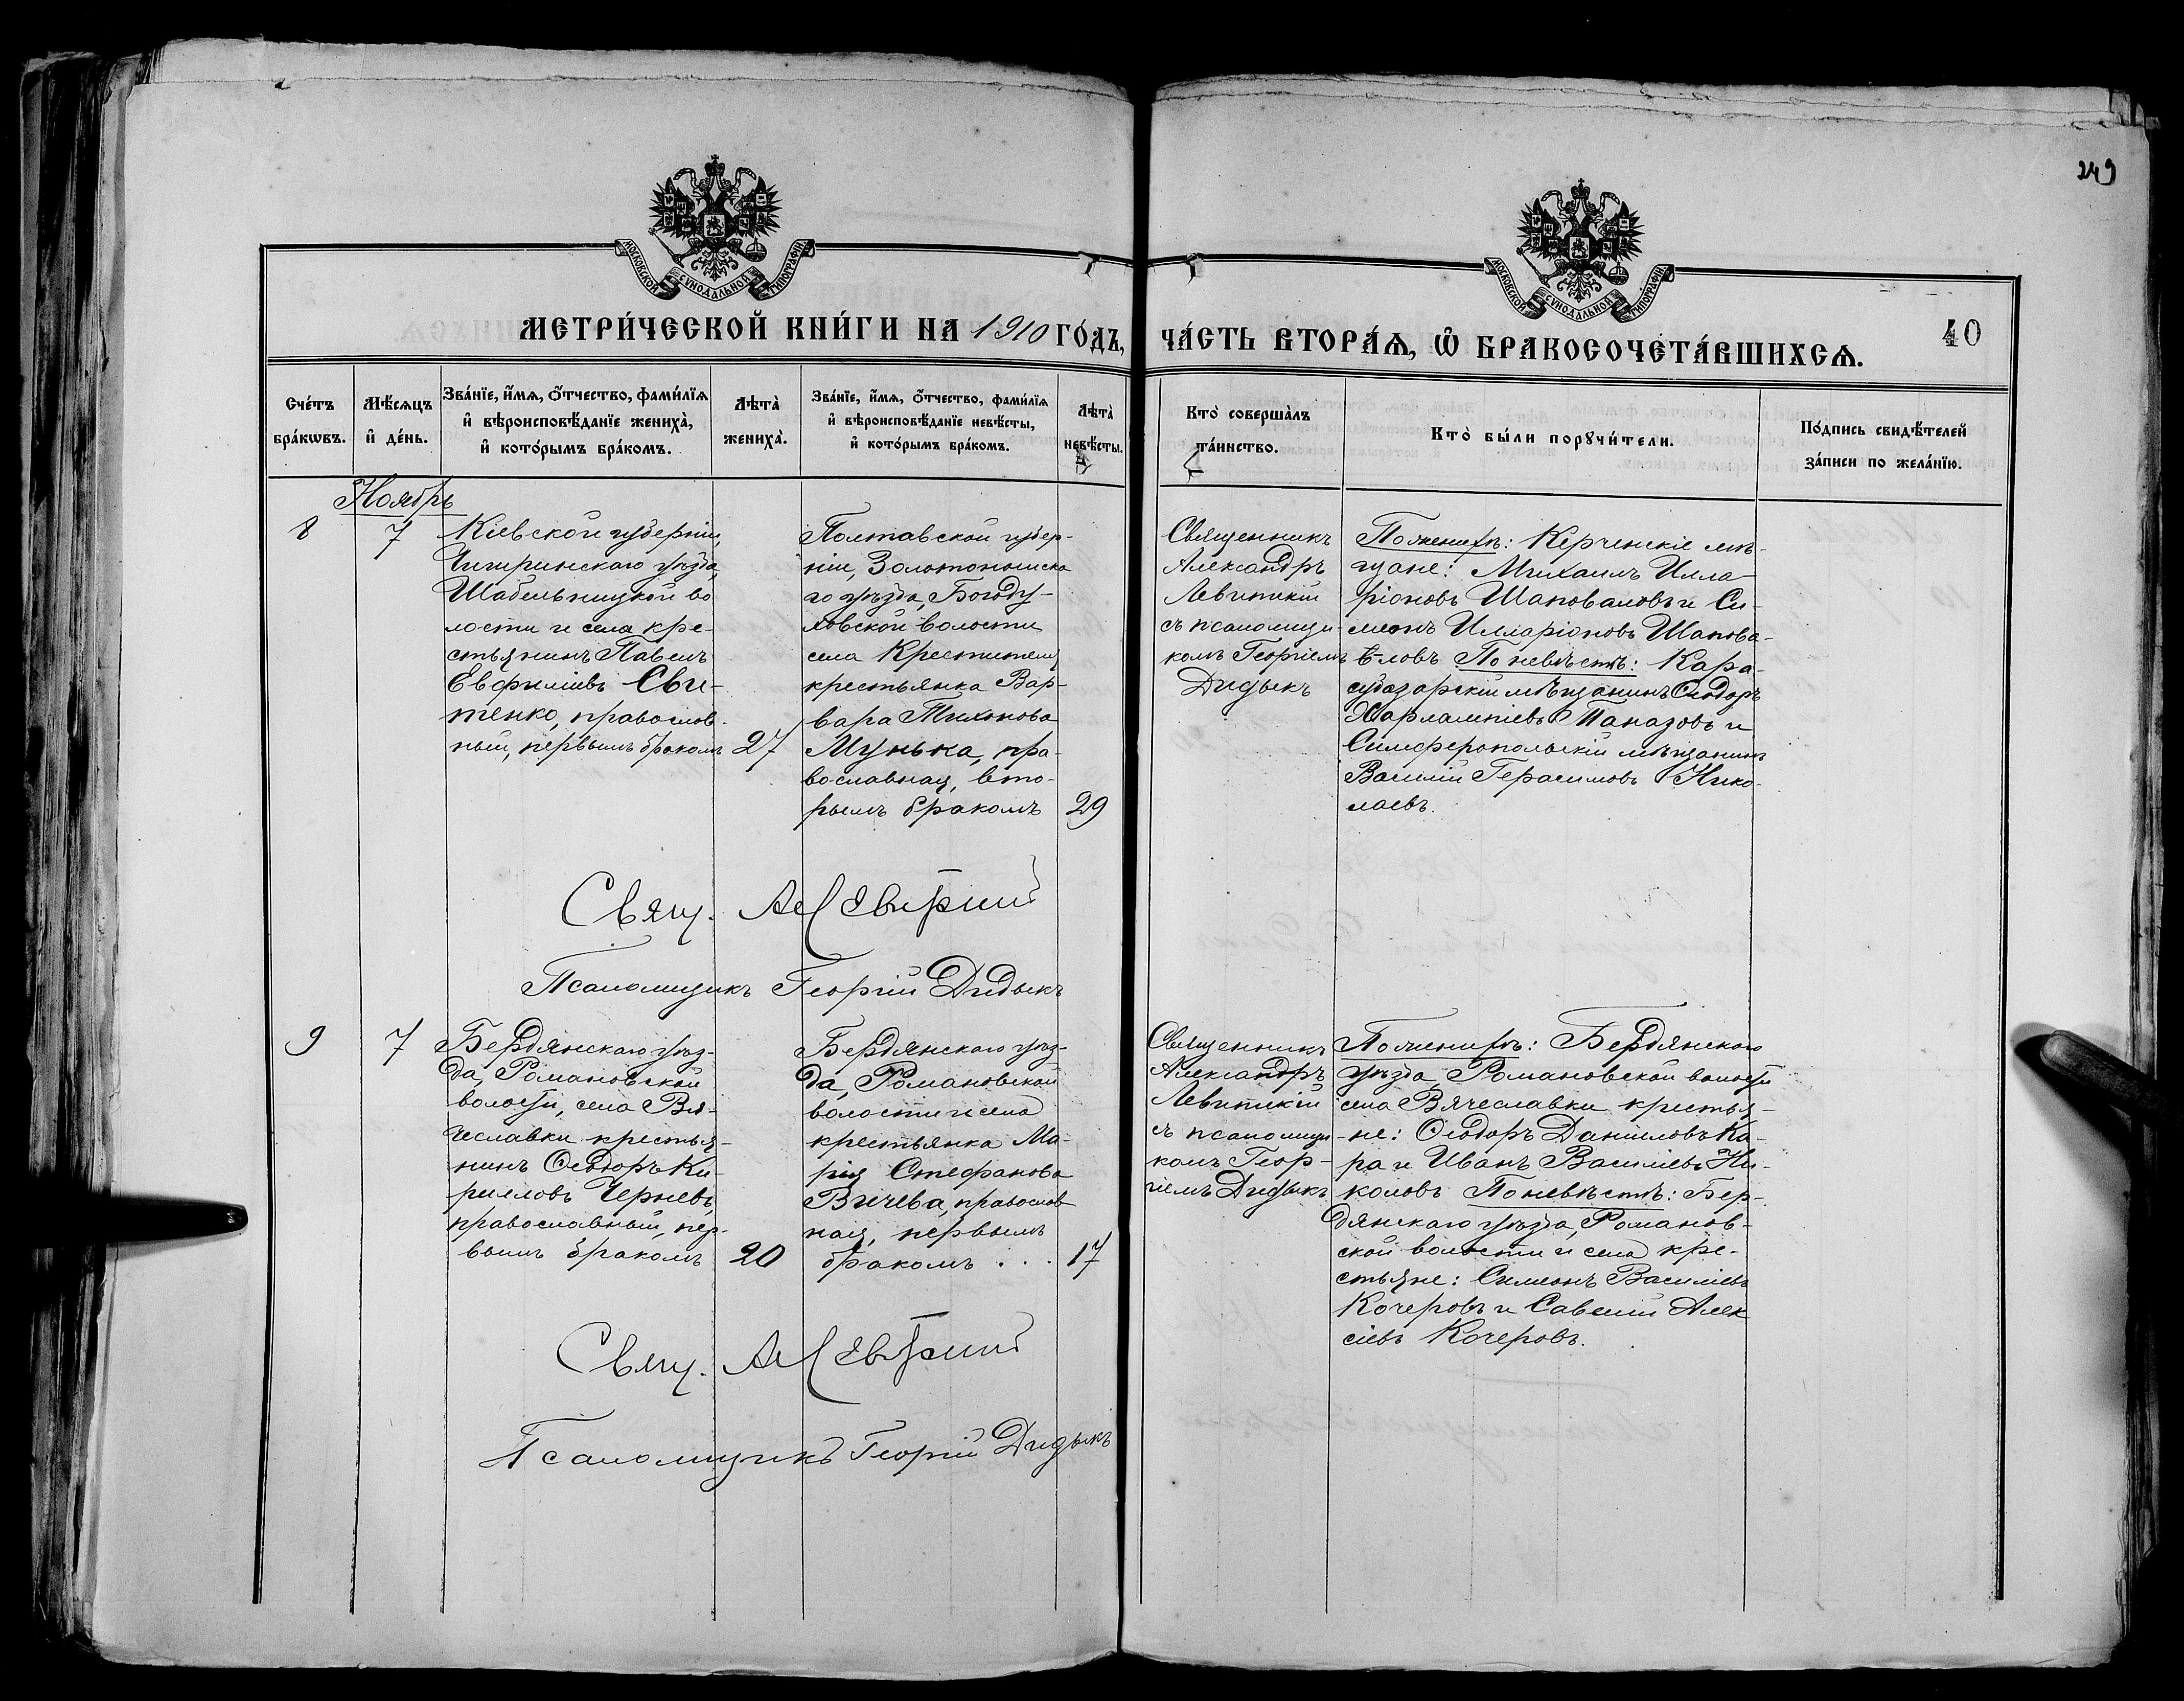 249
МОСКОВСКОЙ СѴНОДАЛЬНОЙ ТИПОГРАФІИ
МОСКОВСКОЙ СѴНОДАЛЬНОЙ ТИПОГРАФІИ
МЕТРИ́ЧЕСКОЙ КНИ́ГИ НА 1910 ГО́ДЪ,
ЧА́СТЬ ВТОРА́Ѧ, Ѡ БРАКОСОЧЕТА́ВШИХСѦ.
40
Сче́тъ
бра́кѡвъ.
Мѣ́сяцъ
и҆ де́нь.
Зва́нїе, и҆́мѧ, ѻ҆́тчество, фами́лїѧ
и҆ вѣроисповѣ́данїе жениха̀,
и҆ кото́рымъ бра́комъ.
Лѣта̀
жениха̀.
Зва́нїе, и҆́мѧ, ѻ҆́тчество, фами́лїѧ
и҆ вѣроисповѣ́данїе невѣ́сты,
и҆ кото́рымъ бра́комъ.
Лѣта̀
невѣ́сты.
Кто̀ соверша́лъ
та́инство.
Кто̀ бы́ли порꙋчи́тели.
По́дпись свидѣ́телей
за́писи по жела́нїю.
Ноябрь
8
7
Кіевской губерніи,
Чигиринскаго уѣзда,
Шабельницкой во
лости и села кре-
стьянинъ Павелъ
Евфиміевъ Сви-
тенко, православ-
ный, первымъ бракомъ
27
Полтавской губер-
ніи, Золотоношска
го уѣзда, Богоду-
ховской волости
села Крестителя
крестьянка Вар-
вара Тихонова
Мунька, пра-
вославная, вто-
рымъ бракомъ
29
Священникъ
Александръ
Левитскій
съ псаломщи-
комъ Георгіемъ
Дидыкъ
По женихѣ: Керченскіе мѣ-
щане: Михаилъ Илла-
ріоновъ Шаповаловъ и Си-
меонъ Илларіоновъ Шапова-
ловъ По невѣстѣ: Кара-
субазарскій мѣщанинъ Ѳеодоръ
Харлампіевъ Таназовъ и
Симферопольскій мѣщанинъ
Василій Герасимовъ Нико-
лаевъ.
Свящ. Ал Левитскій
Псаломщикъ Георгій Дидыкъ
9
7
Бердянскаго уѣз-
да, Романовской
волости, села Вя-
чеславки крестья-
нинъ Ѳеодоръ Ки-
рилловъ Черневъ,
православный, пер-
вымъ бракомъ
20
Бердянскаго уѣз-
да, Романовской
волости и села
крестьянка Ма-
рія Стефанова
Вичева, православ
ная, первымъ
бракомъ . . .
17
Священникъ
Александръ
Левитскій
съ псаломщи-
комъ Геор-
гіемъ Дидыкъ
По женихѣ: Бердянскаго
уѣзда, Романовской волости
села Вячеславки крестья-
не: Ѳеодоръ Даниловъ Ка-
ра и Иванъ Василіевъ Ни-
коловъ По невѣстѣ: Бер-
дянскаго уѣзда, Романов-
ской волости и села кре-
стьяне: Симеонъ Василіевъ
Кочеровъ и Савелій Алек
сіевъ Кочеровъ.
Свящ. Ал Левитскій
Псаломщикъ Георгій Дидыкъ